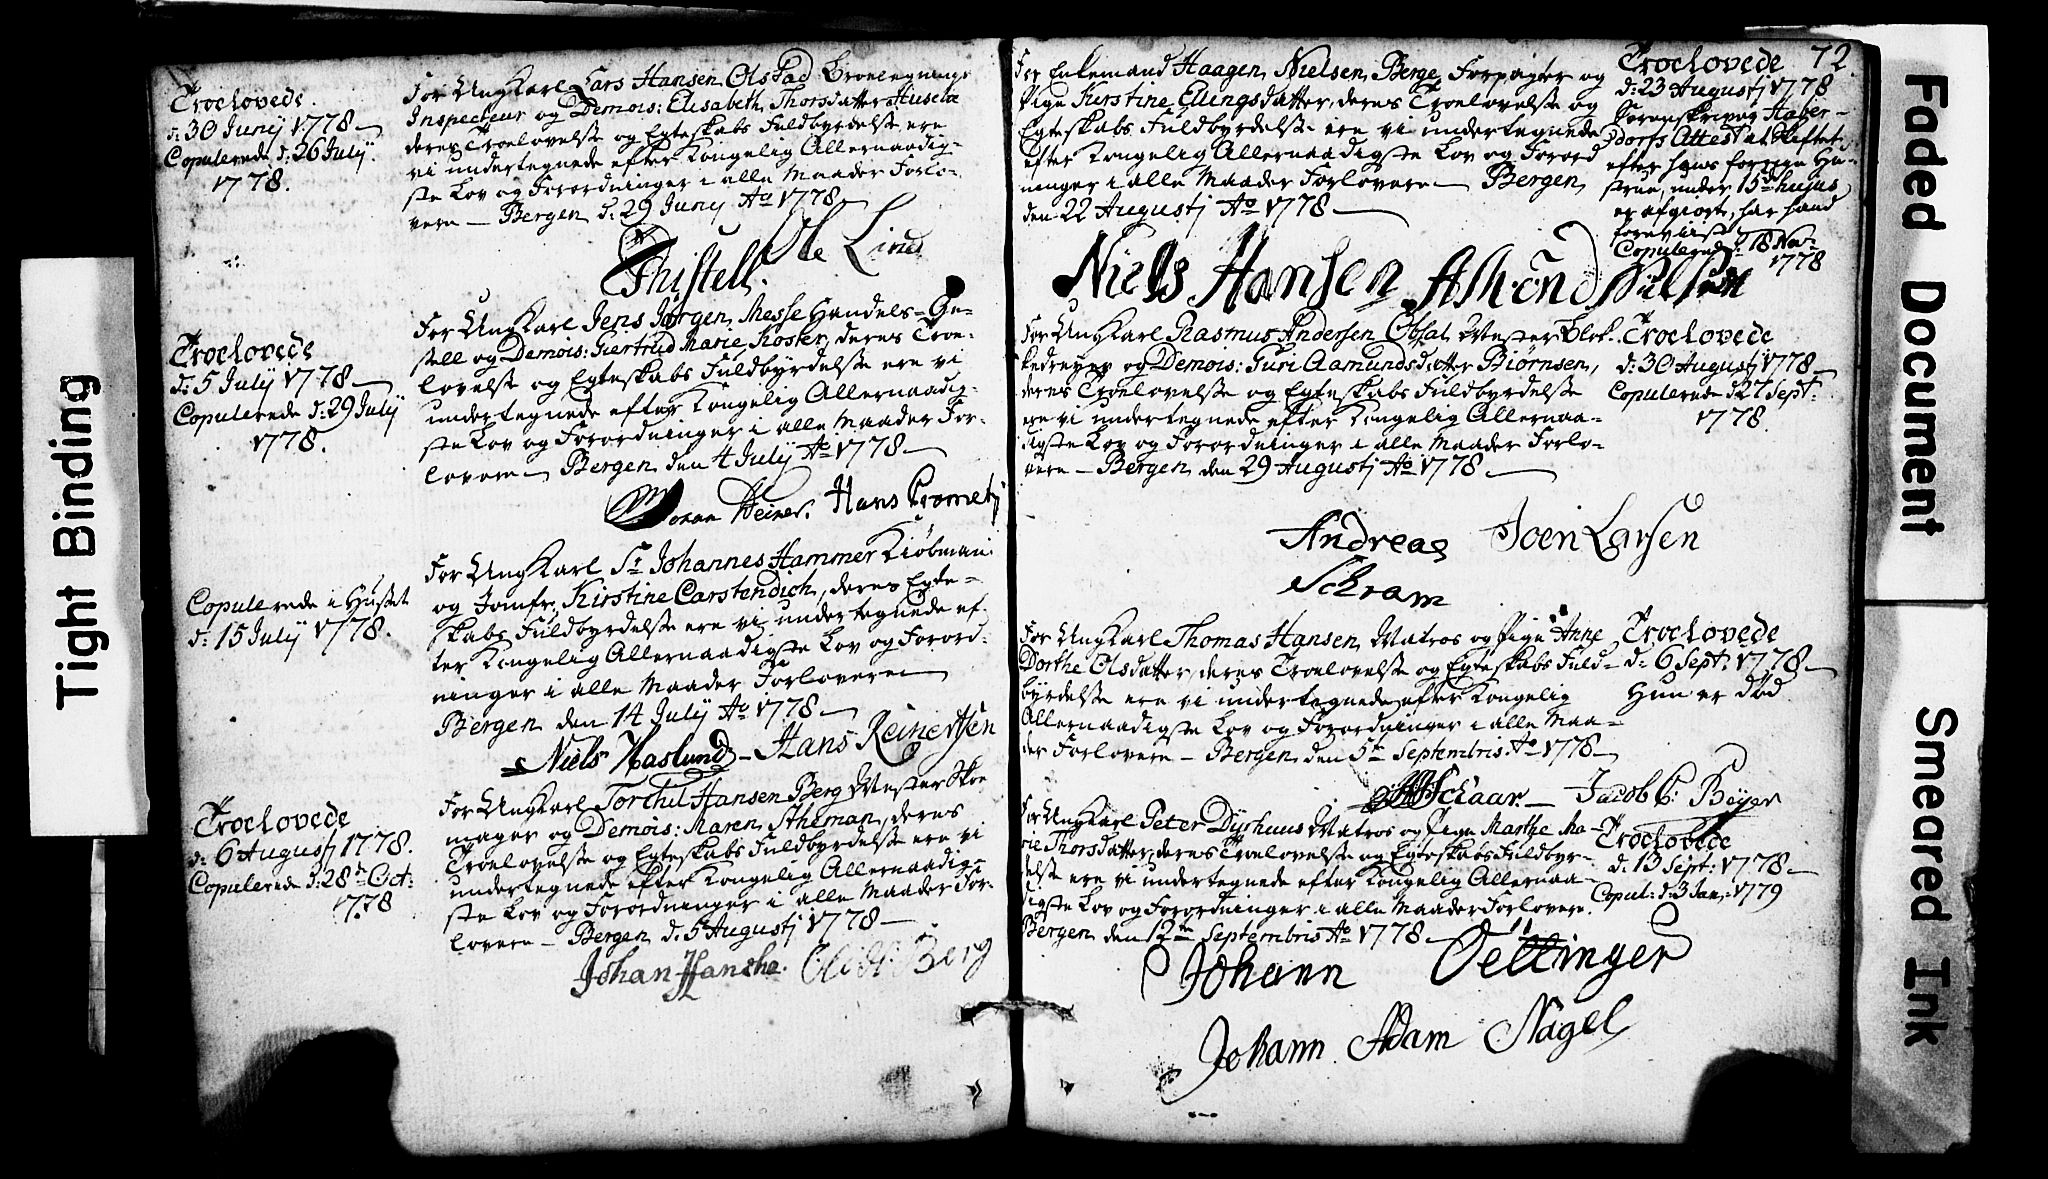 Troelovede
d: 30 Junij 1778
Copulerede d: 26 Julij
1778.
For Ung Karl Lars Hansen Olstad Broelegnings
Inspecteur og Demois: Elisabeth Thorsdatter Husebøe
deres Troelovelse og Egteskabs Fuldbyrdelse ere
vi undertegnede efter Kongelig Allernaadig-
ste Lov og Forordninger i alle Maader Forlo-
vere – Bergen d: 29 Junij Ao 1778
Ole Lind
Thistell.
Troelovede
d: 5 Julij 1778
Copulerede d: 29 Julij
1778.
For Ung Karl Jens Jørgen Messe Handels-Ge-
sell og Demois: Giertrud Marie Koster, deres Troe-
lovelse og Egteskabs Fuldbyrdelse ere vi
undertegnede efter Kongelig Allernaadig-
ste Lov og Forordninger i alle Maader For-
lovere Bergen den 4 Julij Ao 1778
Hans
Copulerede i Huset
d: 15 Julij 1778.
For Ung Karl Sr Johannes Hammer Kiøbman
og Jomfr. Kirstine Carstendich, deres Egte-
skabs Fuldbyrdelse ere vi undertegnede ef-
ter Kongelig Allernaadigste Lov og Forord-
ninger i alle Maader Forlovere
Bergen den 14 Julij Ao 1778
Niels Haslund – Hans Reinertsen
Troelovede
d: 6 Augustj 1778.
Copulerede d: 28de Oct:
1778
For Ung Karl Torchil Hansen Berg Mester Skoe
mager og Demois: Maren Stheman, deres
Troelovelse og Egteskabs Fuldbyrdelse ere vi
undertegnede efter Kongelig Allernaadig-
ste Lov og Forordninger i alle Maader For-
lovere – Bergen d. 5 Augustj 1778
Johan Hansen Berg
72.
For Enkemand Haagen Nielsen Berge Forpagter og
Pige Kirstine Ellingsdatter, deres Troelovelse og
Egteskabs Fuldbyrdelse ere vi undertegnede
efter Kongelig Allernaadigste Lov og Forord
ninger i alle Maader Forlovere Bergen
den 22 Augustj Ao 1778
Troelovede
d: 23 Augustj 1778
Sorenskriver Haber-
dorfs Attest at Skiftet
efter hans forrige Hu-
strue, under 15de hujus
er afgiort, har hand
foreviist
Copulered d: 18 Nov:
1778
Niels Hansen
For Ung Karl Rasmus Andersen Obsal Mester Blok-
kedreyer og Demois: Guri Aamundsdatter Biørnsen,
deres Troelovelse og Egteskabs Fuldbyrdelse
ere vi undertegnede efter Kongelig Allernaa-
digste Lov og Forordninger i alle Maader Forlo-
vere – Bergen den 29 Augustj Ao 1778
Troelovede
d: 30 Augustj 1778
Copulerede d 27 Sept:
1778.
Andreas Joen Larsen
Schram
For Ung Karl Thomas Hansen Matros og Pige Anne
Dorthe Olsdatter, deres Troelovelse og Egteskabs Fuld-
byrdelse ere vi undertegnede efter Kongelig
Allernaadigste Lov og Forordninger i alle Maa-
der Forlovere – Bergen den 5te Septembris Ao 1778
Troelovede
d: 6 Sept: 1778
Hun er død
Jacob C: Beyer
For Ung Karl Peter Dyrhuus Matros og Pige Marthe Ma-
rie Thorsdatter, deres Troelovelse og Egteskabs Fuldbyr-
delse ere vi undertegnede efter Kongelig Allernaa-
digste Lov og Forordninger i alle Maader Forlovere.
Bergen den 12te Septembris Ao 1778
Troelovede
d. 13 Sept: 1778
Copul: d. 3 Jan: 1779
Johann Oettinger
Johann Adam Nagel
Tight Binding
Faded Document
Smeared Ink